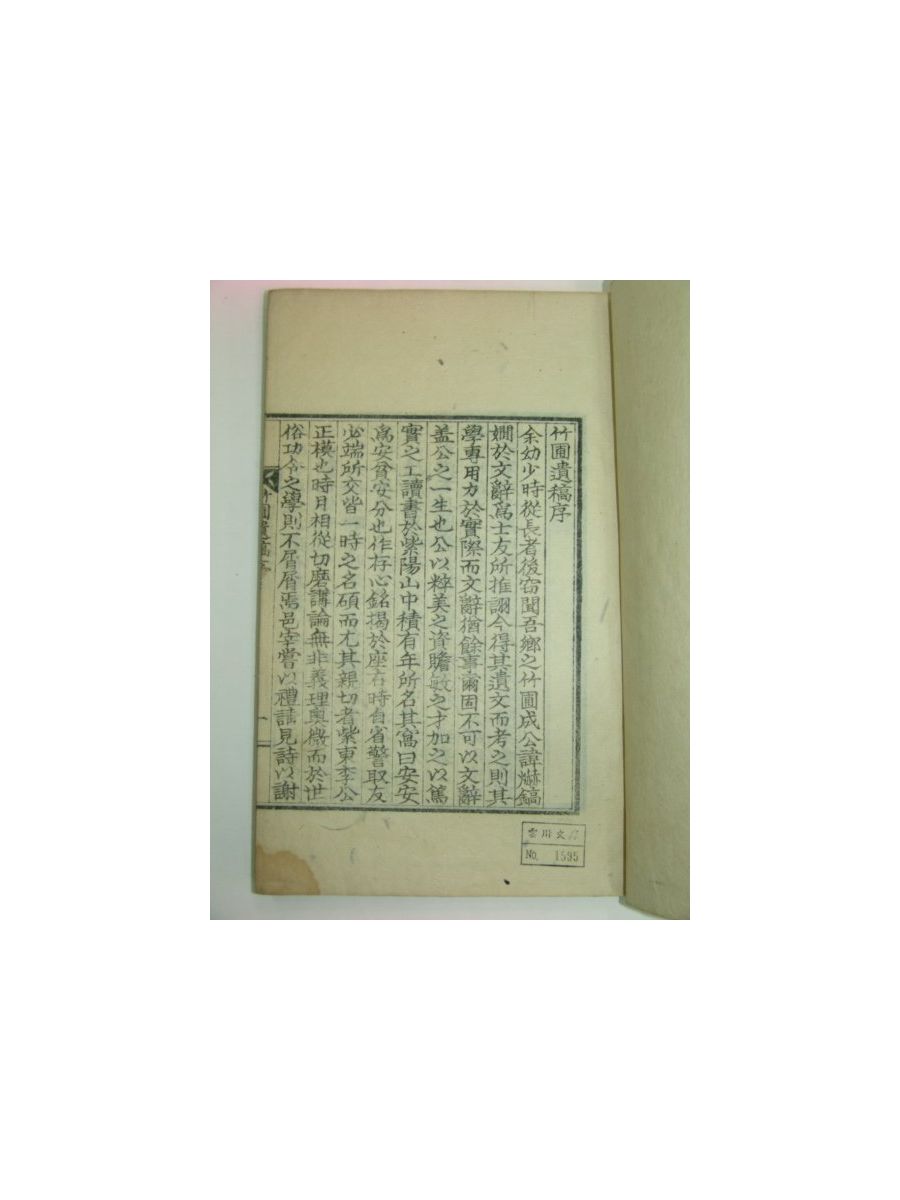 竹圃遺稿序
余幼少時從長者後窃聞吾鄉之竹圃成公諱爀鎬
嫺於文辭爲士友所推詡今得其遺文而考之則其
學專用力於實際而文辭猶餘事爾固不可以文辭
盖公之一生也公以粹美之資贍敏之才加之以篤
實之工讀書於紫陽山中積有年所名其窩曰安安
爲安貧安分也作存心銘揭於座右時自省警取友
必端所交皆一時之名碩而尤其親切者紫東李公
正模也時月相從切磨講論無非義理奧微而於世
俗功令之學則不屑屑焉邑宰嘗以禮請見詩以謝
竹圃遺稿序
一
雲川文
No. 1595